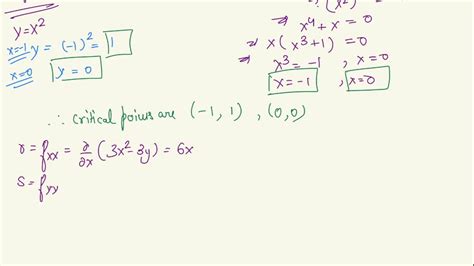 y=x²
x=-1 y = (-1)² = 1
x=0 y = 0
x⁴ + x = 0
⇒ x (x³+1) = 0
⇒ x³ = -1 , x = 0
x = -1 , x=0
∴ critical poinus are (-1, 1) , (0,0)
r = fxx = ∂/∂x (3x²-3y) = 6x
S = fxy